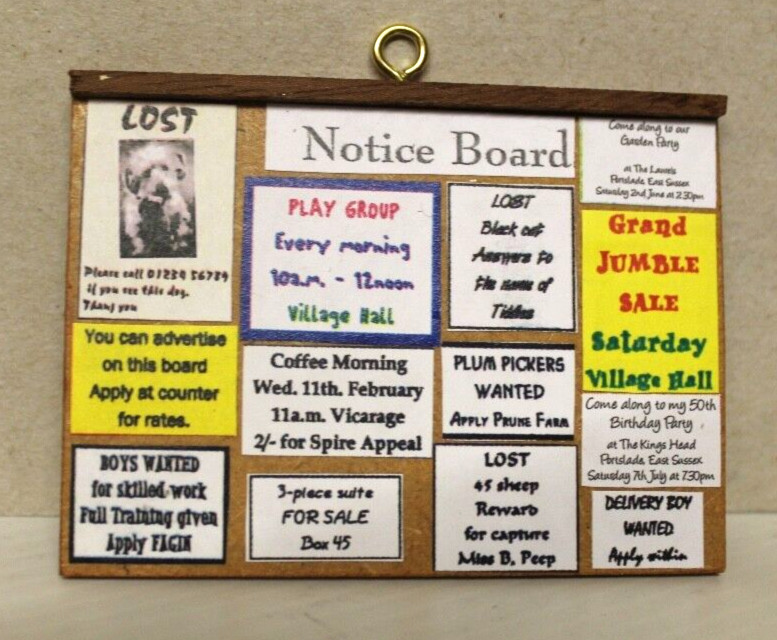 LOST
Please call 01230 56789
if you see this dog.
Thang you
Notice Board
Come along to our
Garden Party
at The Laurels
Portslade, East Sussex
Saturday 2nd June at 2.30pm
PLAY GROUP
Every morning
10a.m. - 12noon
Village Hall
LOST
Black cat
Answers to
the name of
Tiddles
Grand
JUMBLE
SALE
Saturday
Village Hall
You can advertise
on this board
Apply at counter
for rates.
Coffee Morning
Wed. 11th. February
11a.m. Vicarage
2/- for Spire Appeal
PLUM PICKERS
WANTED
APPLY PRUNE FARM
Come along to my 50th
Birthday Party
at The Kings Head
Portslade, East Sussex
Saturday 7th July at 7.30pm
BOYS WANTED
for skilled work
Full Training given
Apply FAGIN
3-piece suite
FOR SALE
Box 45
LOST
45 sheep
Reward
for capture
Miss B. Peep
DELIVERY BOY
WANTED
Apply within